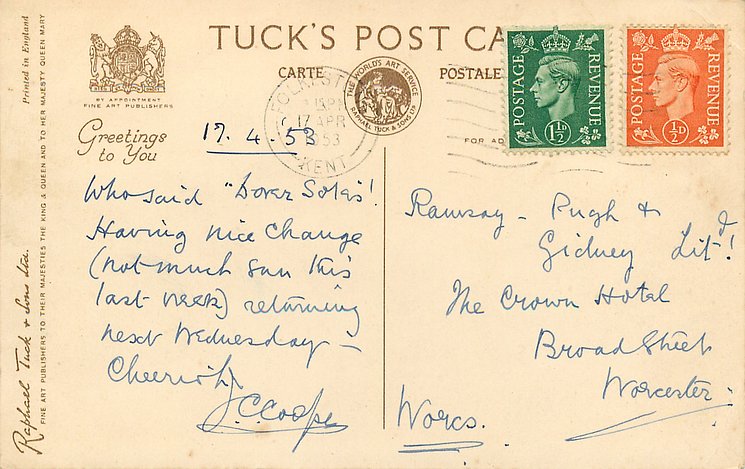 Printed in England
BY APPOINTMENT
FINE ART PUBLISHERS
TUCK'S POST CA
CARTE
POSTALE
THE WORLD'S ART SERVICE
RAPHAEL TUCK & SONS LTD
FOLKEST
17 APR
53
KENT
POSTAGE
REVENUE
1½D
POSTAGE
REVENUE
½D
FOR AD
Greetings
to You
17. 4. 53
Who said "Dover Soles"!
Having nice change
(not much sun this
last week) returning
next Wednesday –
Cheerioh!
J.C. Cooper
Ramsay - Pugh &
Gidney Ltd!
The Crown Hotel
Broad Street
Worcester.
Worcs.
Raphael Tuck & Sons Ltd.
FINE ART PUBLISHERS TO THEIR MAJESTIES THE KING & QUEEN AND TO HER MAJESTY QUEEN MARY